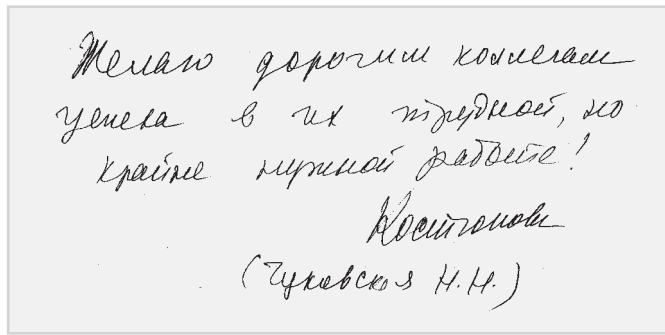 Желаю дорогим коллегам
успеха в их трудной, но
крайне нужной работе!
Костюкова
(Чуковская Н.Н.)